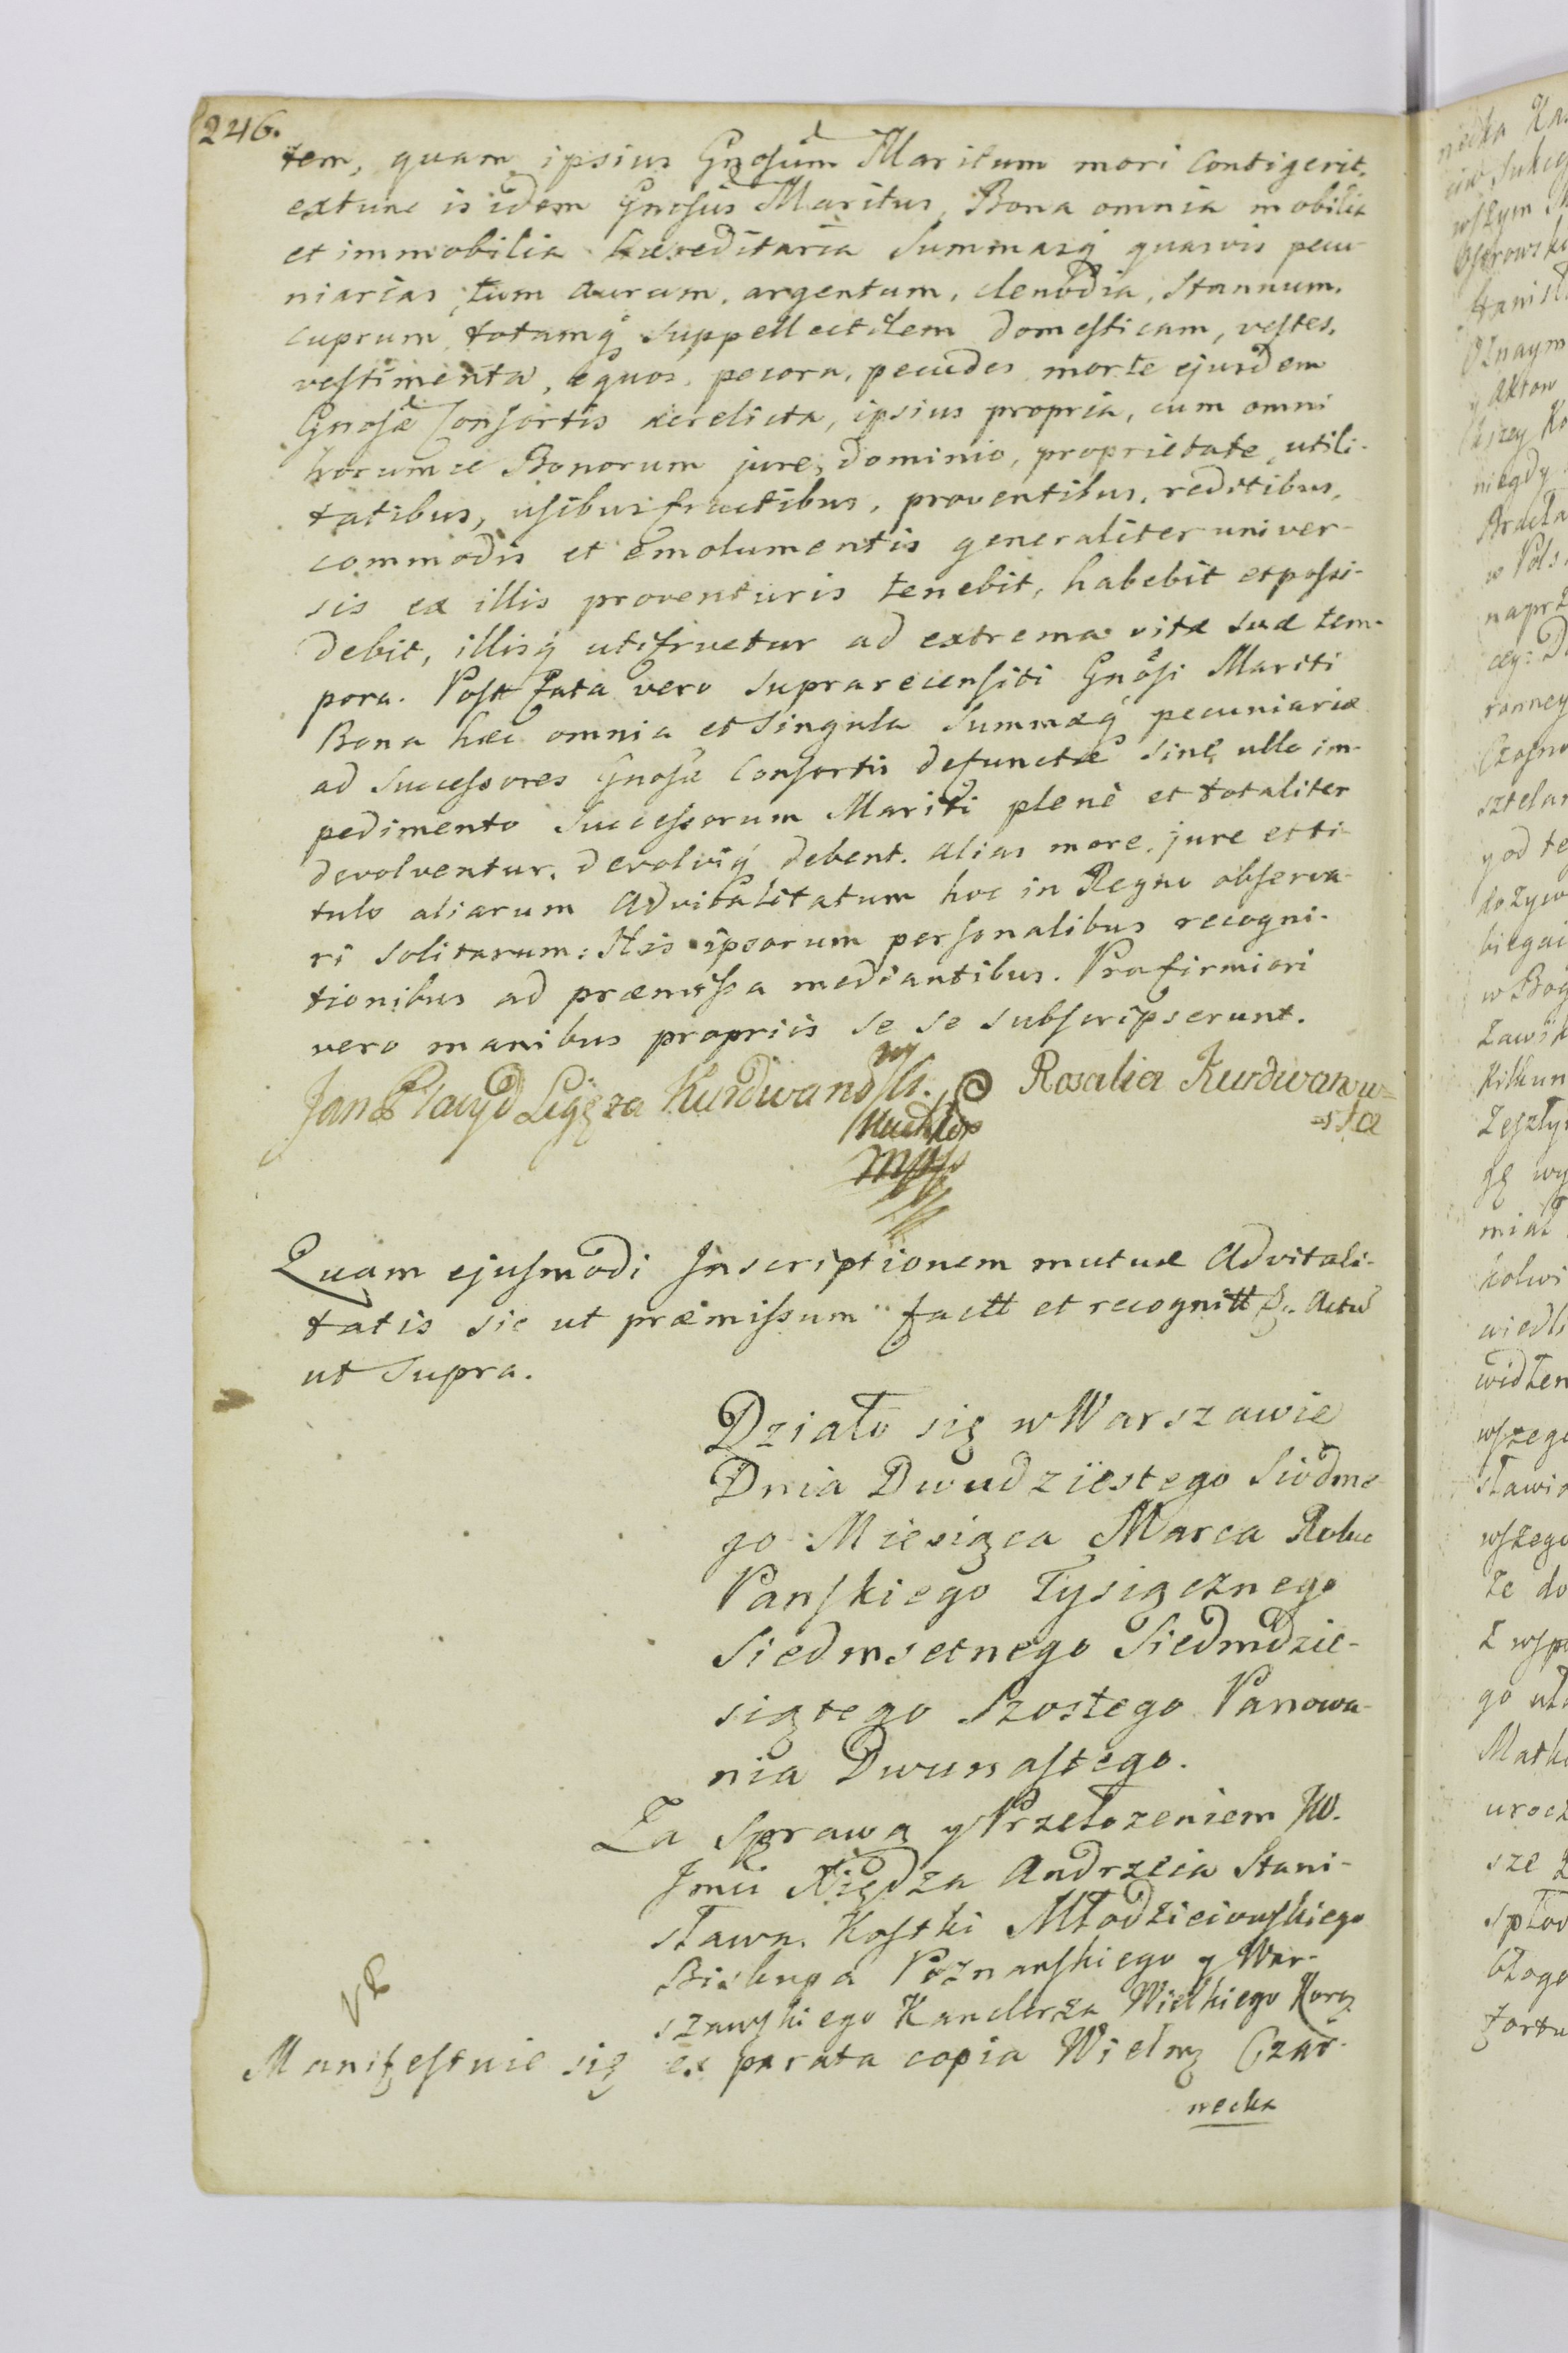 246.
tem, quam ipsius Gnosum Maritum mori contigerit,
extunc is idem Gnosus Maritus, Bona omnia mobilia
et immobilia hæreditaria summasq quasvis pecu-
niarias, tum aurum, argentum, clenodia, stannum,
cuprum, totamq suppellectilem domesticam, vestes,
vestimenta, equos, pecora, pecudes morte ejusdem
Gnosæ Consortis derelicta, ipsius propria, cum omni
horumce Bonorum jure, dominio, proprietate, utili-
tatibus, usibusfructibus, proventibus, reditibus,
commodis et emolumentis generaliter univer-
sis ex illis proventuris tenebit, habebit et possi-
debit, illisq utifruetur ad extrema vitæ suæ tem-
pora. Post fata vero suprarecensiti Gnosi Mariti
Bona hæc omnia et singula summæq pecuniariæ
ad successores Gnosæ Consortis defunctæ sine ullo im-
pedimento successorum Mariti plenè et totaliter
devolventur, devolviq debent. alias more, jure et ti-
tulo aliarum Advitalitatum hoc in Regno observa-
ri solitarum: His ipsorum personalibus recogni-
tionibus ad præmissa mediantibus. Pro firmiori
vero manibus propriis se se subscripserunt.
Jan Placyd Ligęza Kurdwanowski. Rosalia Kurdwanow=
=ska
mp
Quam ejusmodi Inscriptionem mutuæ Advitali-
tatis sic ut præmissum factt et recognitt Actu
ut supra.
Działo się w Warszawie
Dnia Dwudziestego Siodme-
go Miesiąca Marca Roku
Panskiego Tysiącznego
Siedmsetnego Siedmdzie-
siątego Szostego Panowa-
nia Dwunastego.
Za sprawą y Przełozeniem JW.
Jmci Xiędza Andrzeia Stani-
sława Kostki Młodzieiowskiego
Biskupa Poznanskiego y War-
szawskiego Kanclerza Wielkiego Korą
Manifestuie się ex parata copia Wielmz Czar-
necka